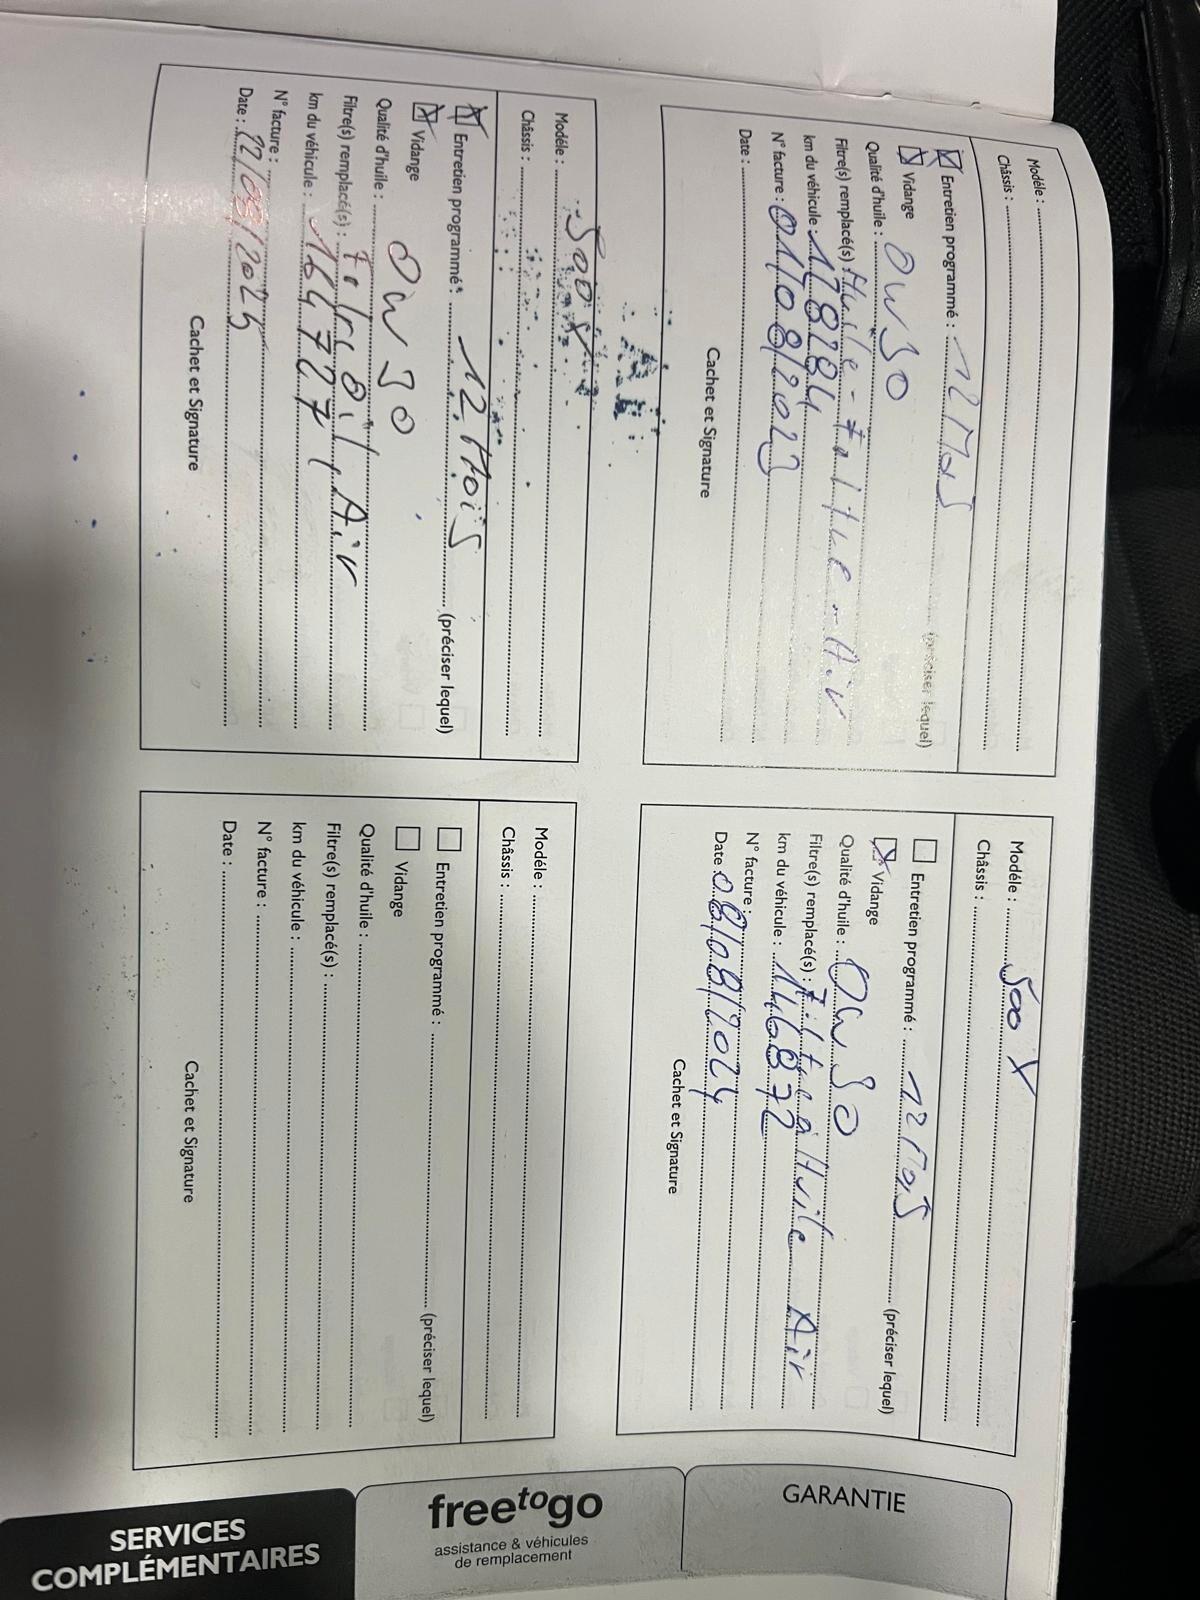 Modéle :
Châssis :
Entretien programmé : 12 Mois (préciser lequel)
Vidange
Qualité d'huile : 0W30
Filtre(s) remplacé(s) : Huile - Filtre - Air
km du véhicule : 128284
N° facture : 01/08/2023
Date :
Cachet et Signature
Modéle : 500 X
Châssis :
Entretien programmé : 12 Mois (préciser lequel)
Vidange
Qualité d'huile : 0W30
Filtre(s) remplacé(s) : Filtre à Huile Air
km du véhicule : 146872
N° facture :
Date : 08/08/2024
Cachet et Signature
Modéle : 500 X
Châssis :
Entretien programmé : 12 Mois (préciser lequel)
Vidange
Qualité d'huile : 0W30
Filtre(s) remplacé(s) : Air
km du véhicule : 164727
N° facture :
Date : 12/08/2025
Cachet et Signature
Modéle :
Châssis :
Entretien programmé : (préciser lequel)
Vidange
Qualité d'huile :
Filtre(s) remplacé(s) :
km du véhicule :
N° facture :
Date :
Cachet et Signature
GARANTIE
freetogo
assistance & véhicules
de remplacement
SERVICES
COMPLÉMENTAIRES